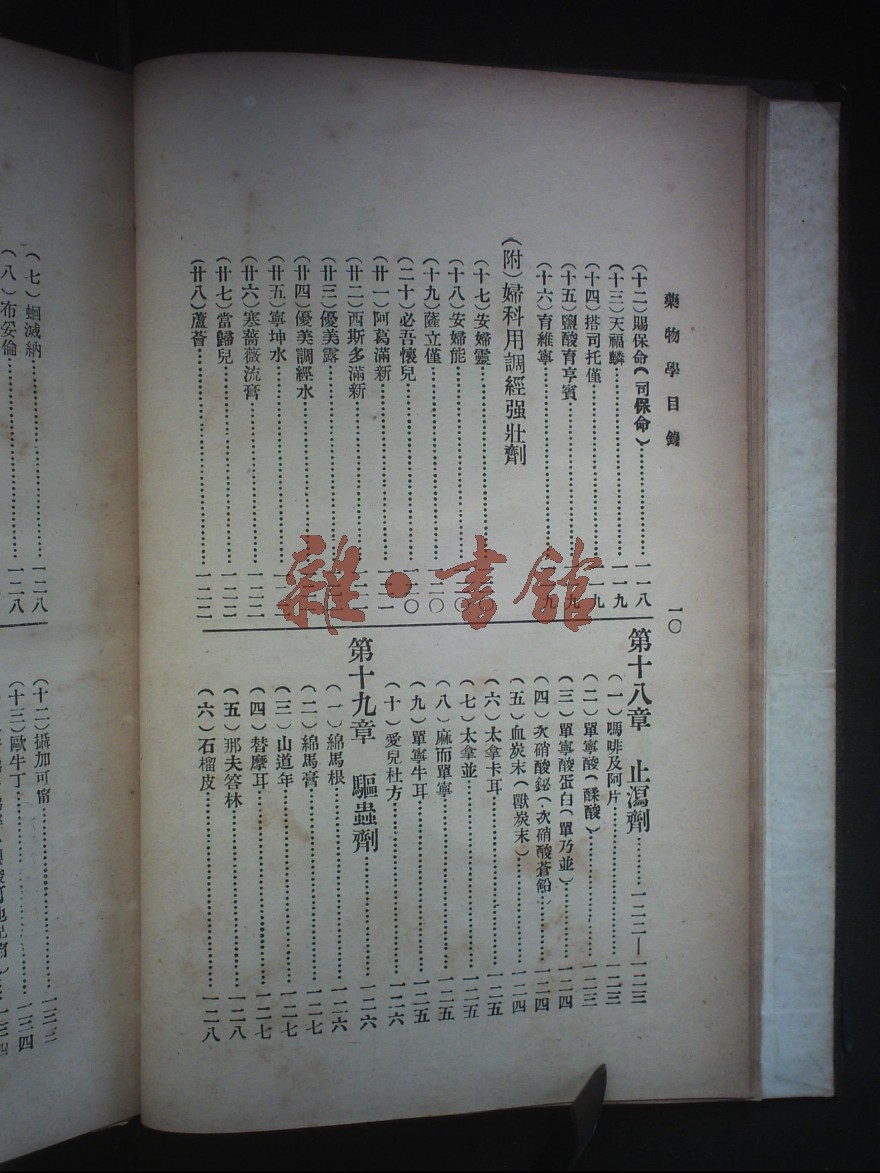 藥物學目錄
一〇
（十二）賜保命（司保命）……一一八
（十三）天福麟……一一九
（十四）搭司托僅……九
（十五）鹽酸育亨賓……九
（十六）育維寧……九
（附）婦科用調經强壯劑
（十七）安婦靈
（十八）安婦能
（十九）薩立僅……一二〇
（二十）必吾懷兒……一二〇
（廿一）阿葛滿新
（廿二）西斯多滿新
（廿三）優美露
（廿四）優美調經水
（廿五）寧坤水
（廿六）寒薔薇流膏……一二二
（廿七）當歸兒……一二二
（廿八）蘆薈……一二二
第十八章 止瀉劑……一二二—一二三
（一）嗎啡及阿片……一二三
（二）單寧酸（鞣酸）……一二三
（三）單寧酸蛋白（單乃並）……一二四
（四）次硝酸鉍（次硝酸蒼鉛）……一二四
（五）血炭末（獸炭末）……一二四
（六）太拿卡耳……一二五
（七）太拿並……一二五
（八）麻而單寧……一二五
（九）單寧牛耳……一二五
（十）愛兒杜方……一二六
第十九章 驅蟲劑……一二六
（一）綿馬根……一二六
（二）綿馬膏……一二七
（三）山道年……一二七
（四）替摩耳……一二七
（五）那夫答林……一二八
（六）石榴皮……一二八
（七）蛔滅納……一二八
（八）布妥倫……一二八
（十二）攝加可甯……一三三
（十三）歐牛丁……一三四
一三四
雜·書館